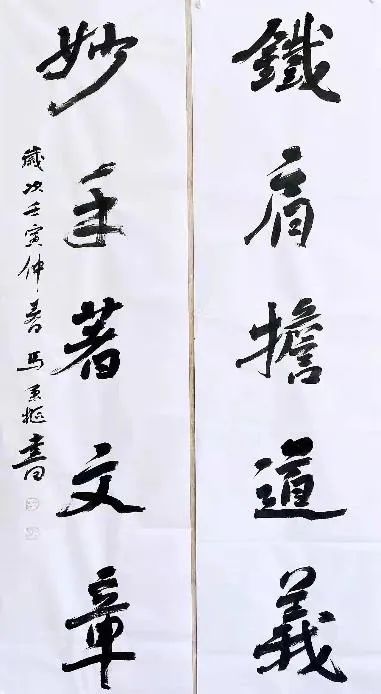 鐵肩擔道義
妙手著文章
歲次壬寅仲春馬書